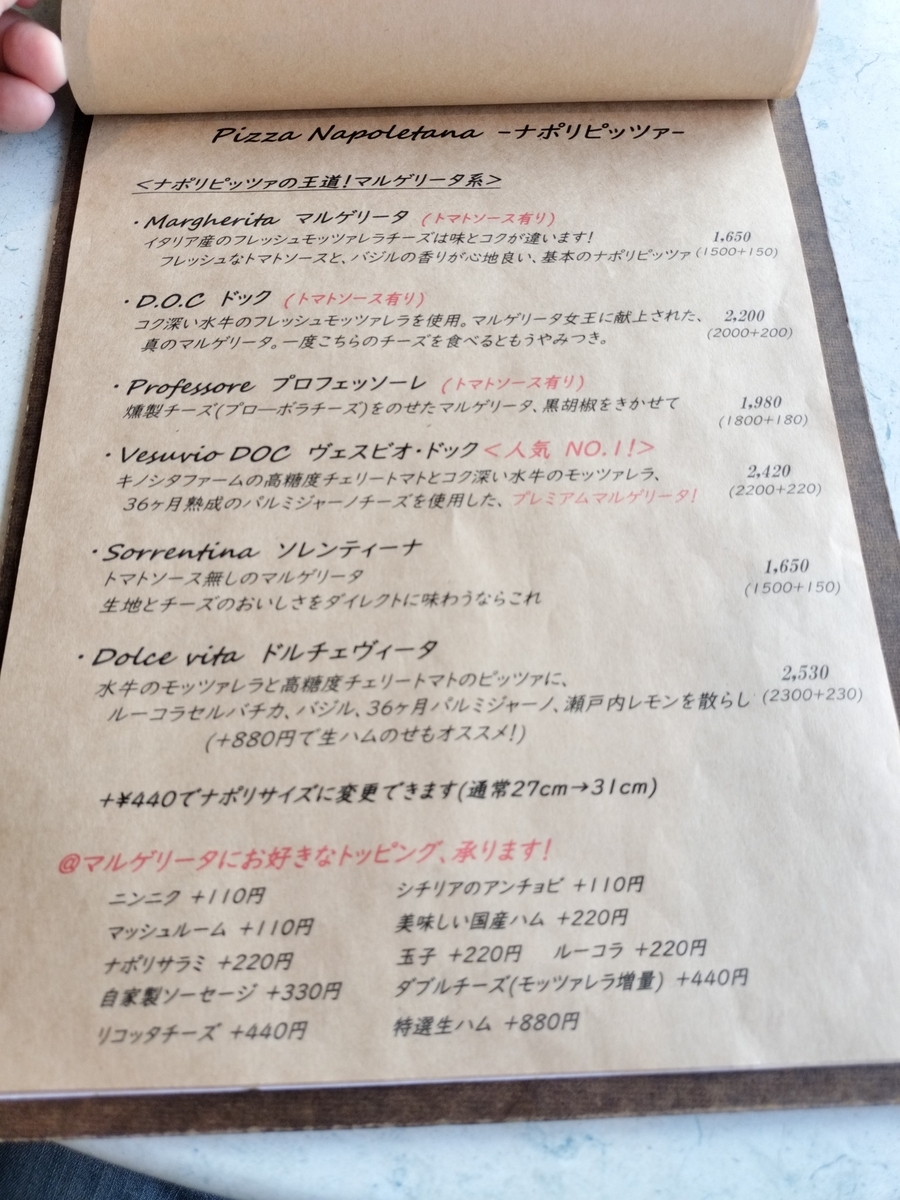 Pizza Napoletana -ナポリピッツァ-
<ナポリピッツァの王道!マルゲリータ系>
・Margherita マルゲリータ (トマトソース有り)
イタリア産のフレッシュモッツァレラチーズは味とコクが違います! 1,650
フレッシュなトマトソースと、バジルの香りが心地良い、基本のナポリピッツァ (1500+150)
・D.O.C ドック (トマトソース有り)
コク深い水牛のフレッシュモッツァレラを使用。マルゲリータ女王に献上された、 2,200
真のマルゲリータ。一度こちらのチーズを食べるともうやみつき。 (2000+200)
・Professore プロフェッソーレ (トマトソース有り)
燻製チーズ(プローボラチーズ)をのせたマルゲリータ、黒胡椒をきかせて 1,980
(1800+180)
・Vesuvio DOC ヴェスビオ・ドック <人気 NO.1!>
キノシタファームの高糖度チェリートマトとコク深い水牛のモッツァレラ、 2,420
36ヶ月熟成のパルミジャーノチーズを使用した、プレミアムマルゲリータ! (2200+220)
・Sorrentina ソレンティーナ
トマトソース無しのマルゲリータ 1,650
生地とチーズのおいしさをダイレクトに味わうならこれ (1500+150)
・Dolce vita ドルチェヴィータ
水牛のモッツァレラと高糖度チェリートマトのピッツァに、 2,530
ルーコラセルバチカ、バジル、36ヶ月パルミジャーノ、瀬戸内レモンを散らし (2300+230)
(+880円で生ハムのせもオススメ!)
+¥440でナポリサイズに変更できます(通常27cm→31cm)
@マルゲリータにお好きなトッピング、承ります!
ニンニク +110円 シチリアのアンチョビ +110円
マッシュルーム +110円 美味しい国産ハム +220円
ナポリサラミ +220円 玉子 +220円 ルーコラ +220円
自家製ソーセージ +330円 ダブルチーズ(モッツァレラ増量) +440円
リコッタチーズ +440円 特選生ハム +880円